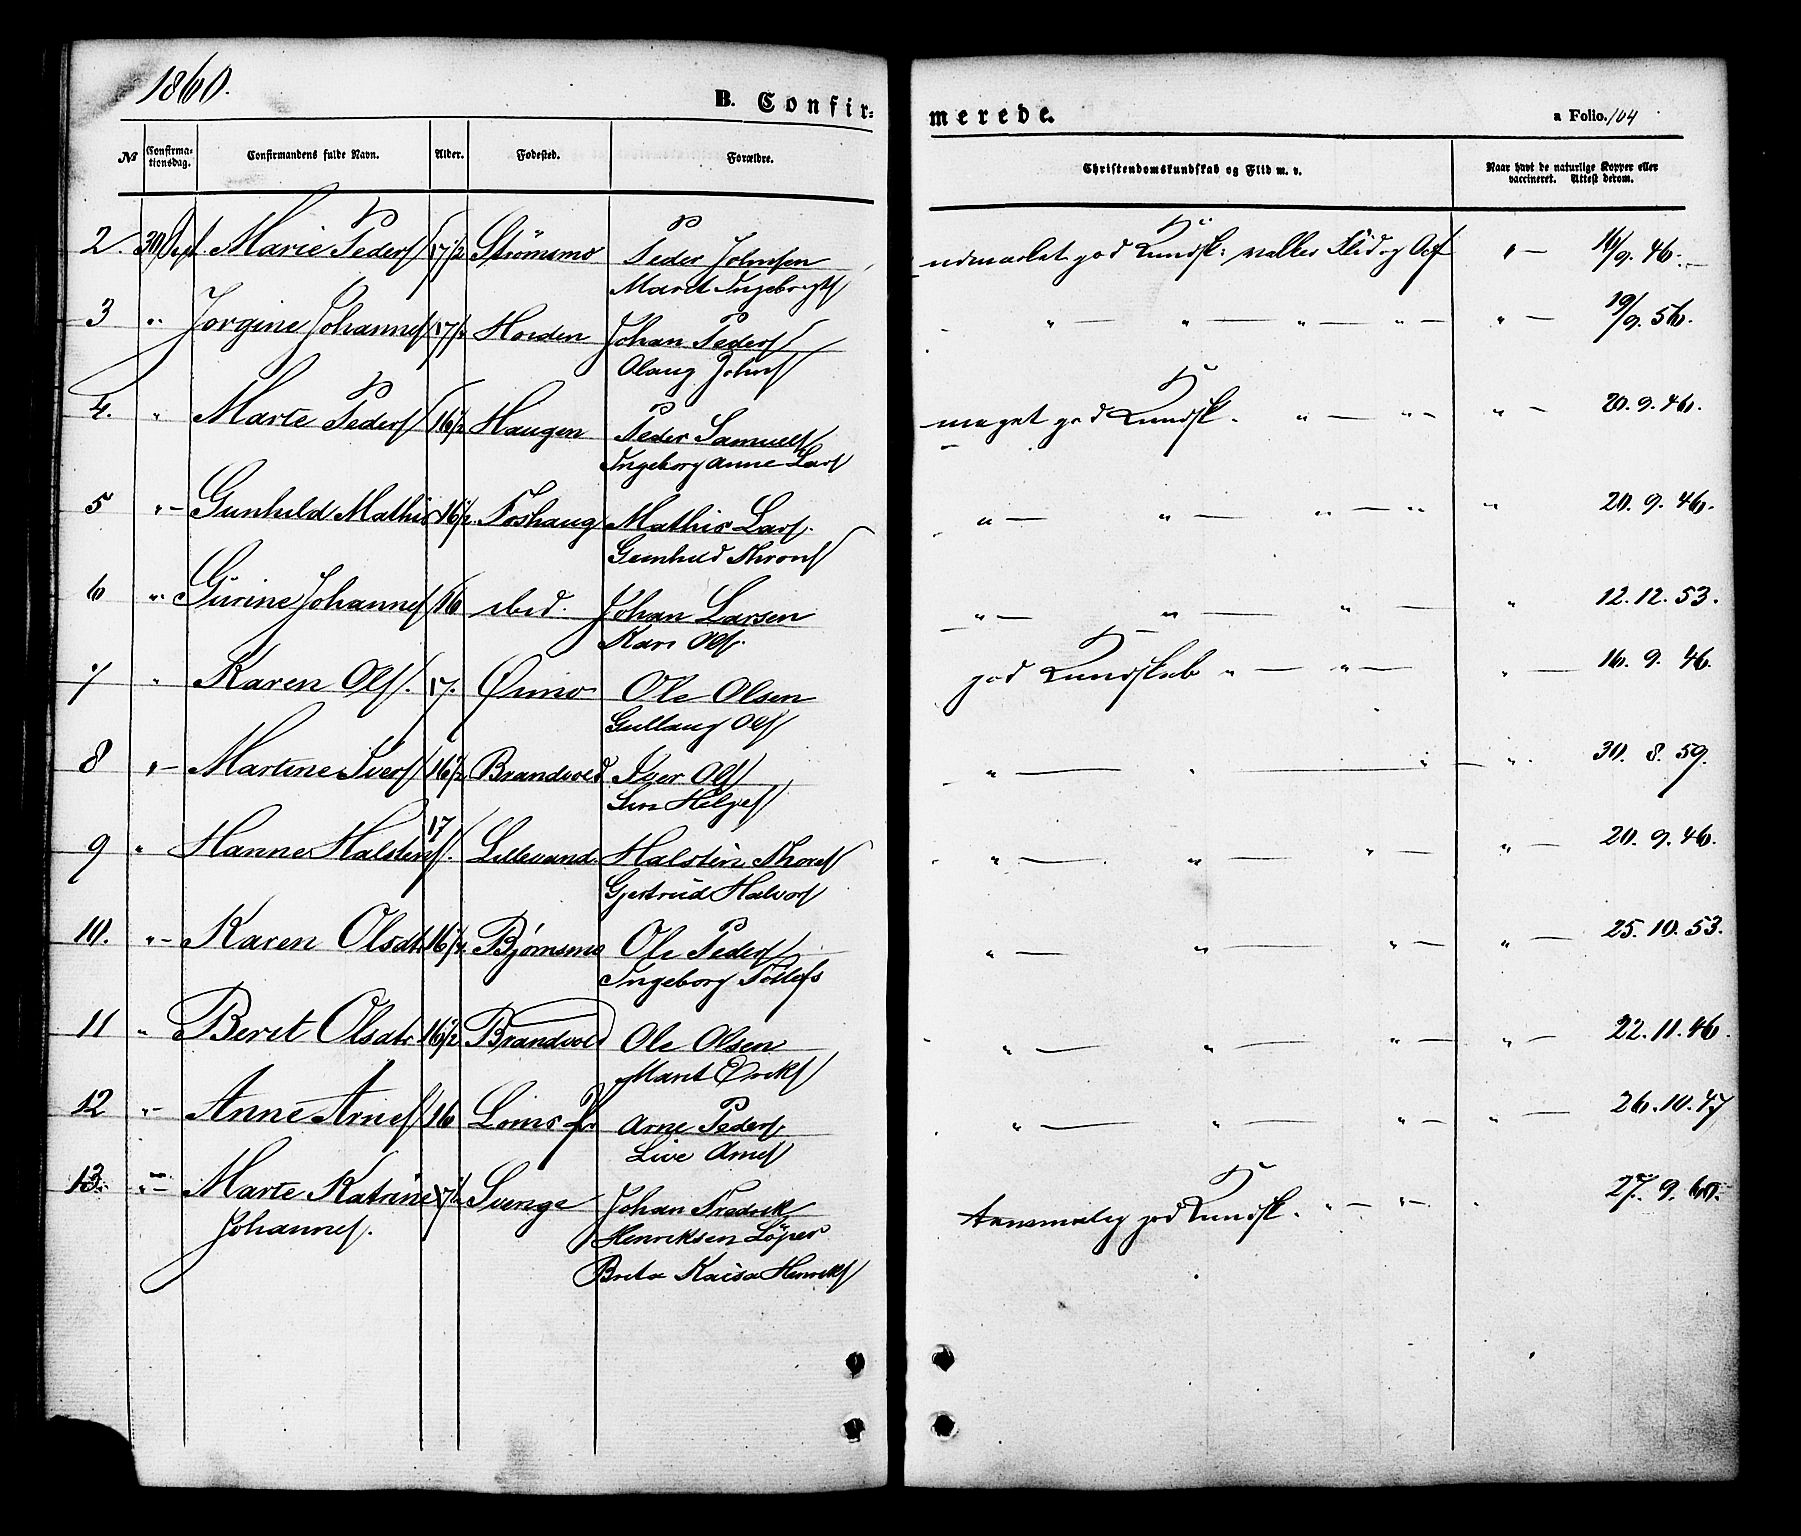 1860.
B. Confirmerede.
a Folio. 104
№ Confirmationsdag. Confirmandens fulde Navn. Alder. Fødested. Forældre. Christendomskundskab og Flid m. v. Naar havt de naturlige Kopper eller vaccineret. Attest derom.
2. 30 Sept. Marie Pedersd 17 1/2 Strömsmo Peder Johnsen udmærket god Kundsk: Flid og " —
Marit Ingebrigtsd
3 " Jorgine Johannesd 17 1/2 Horden Johan Peders " — " — " — " — " — 19/9. 56.
Olaug Johnsd
4. " Marte Pedersd 16 1/2 Haugen Peder Samuels meget god Kundsk. " — " — " — 20. 9. 46.
Ingeborg Anne Larsd
5 " — Gunhild Mathis 16 1/2 Foshaug Mathis Lars. " — " — " — " " 20. 9. 46.
Gunhild Thronsd
6 " Gurine Johannesd 16 ibid. Johan Larsen " — " — " — " 12. 12. 53.
Kari Olsd.
7 " Karen Olsd. 17. Ømo Ole Olsen god Kundskab " — " — " — 16. 9. 46.
Gullaug Olsd
8 " — Martine Iversd 16 1/2 Brandvold Iver Ols " — " — " — " . 30. 8. 59.
Siri Helgesd
9 " Hanne Halstensd. 17 Lillevand. Halstein Thores " — " — " — " — 20. 9. 46.
Gjertrud Halvorsd
10. " — Karen Olsdtr 16 1/2. Bjørnsmo Ole Peders " — " — " — " — 25. 10. 53.
Ingeborg Tollefs
11 " Beret Olsdtr 16 1/2 Brandvold Ole Olsen " — " — " — " — 22. 11. 46.
Marit Eriksd
12 " — Anne Arnesd 16 Arne Peders " — " — " — " — 26. 10. 47
Live Arnesd
13. " — Marte Katrine 17 1/2 Svenge Johan Fredrik temmelig god Kundsk. " — " — " 27. 9. 60.
Johannesd. Henriksen Löper
Brita Kaisa Henriksd